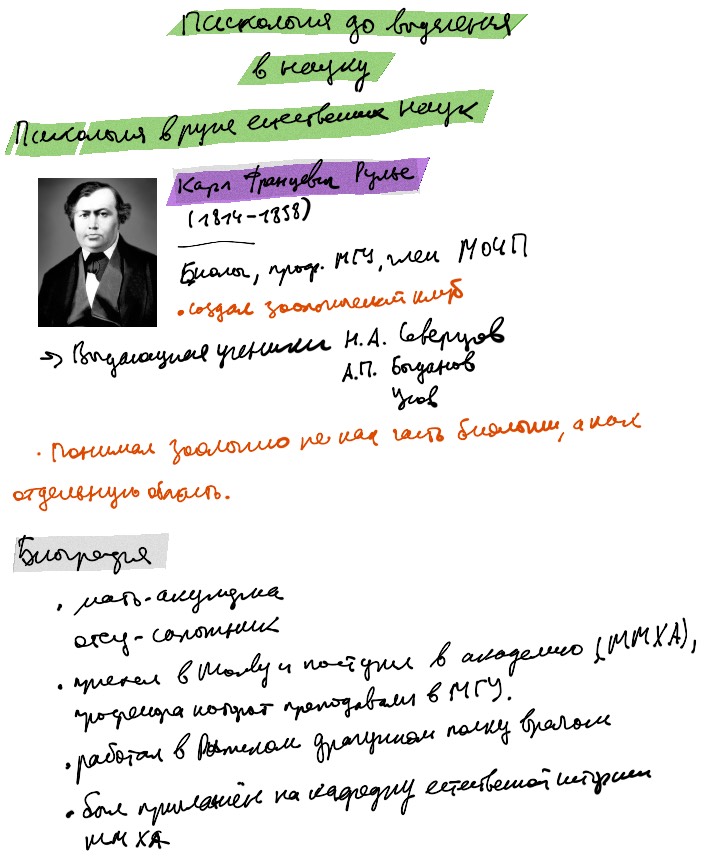 Психология до выделения
в науку
Психология в русле естественных наук
Карл Францевич Рулье
(1814-1858)
Биолог, проф. МГУ, член МОИП
• создал зоологический клуб
→ Выдающиеся ученики Н.А. Северцов
А.П. Богданов
Усов
• Понимал зоологию не как часть биологии, а как
отдельную область.
Биография
• мать-акушерка
отец-сапожник
• приехал в Москву и поступил в академию (ММХА),
профессора которой преподавали в МГУ.
• работал в драгунском полку врачом
• был приглашён на кафедру естественной истории
ММХА